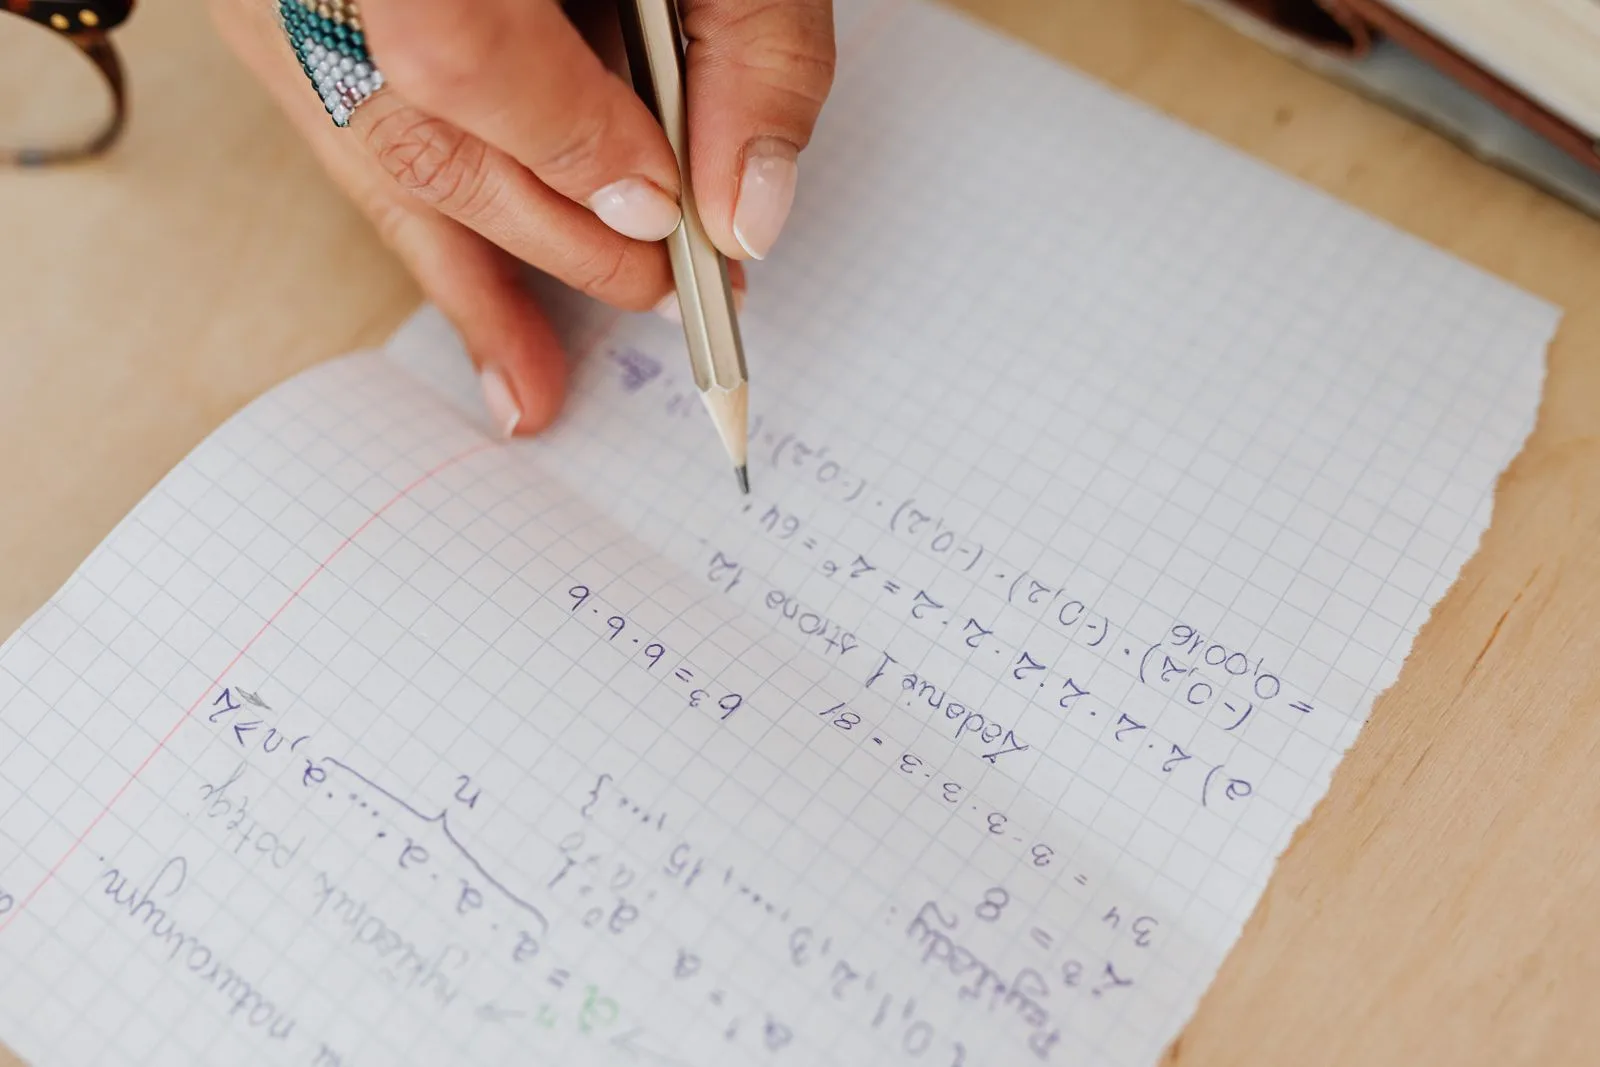 naturalnym.
aⁿ = a · a · a · ..... · a, n ≥ 2
n
wykładnik potęgi
a¹ = a
a⁰ = 1
0, 1, 2, 3, ..., 15, ... }
Przykłady :
2³ = 8
3⁴ = 3 · 3 · 3 · 3 = 81
b³ = b · b · b
Zadanie 1 strona 12
a) 2 · 2 · 2 · 2 · 2 · 2 = 2⁶ = 64
(-0,2) · (-0,2) · (-0,2) · (-0,2)
= 0,0016